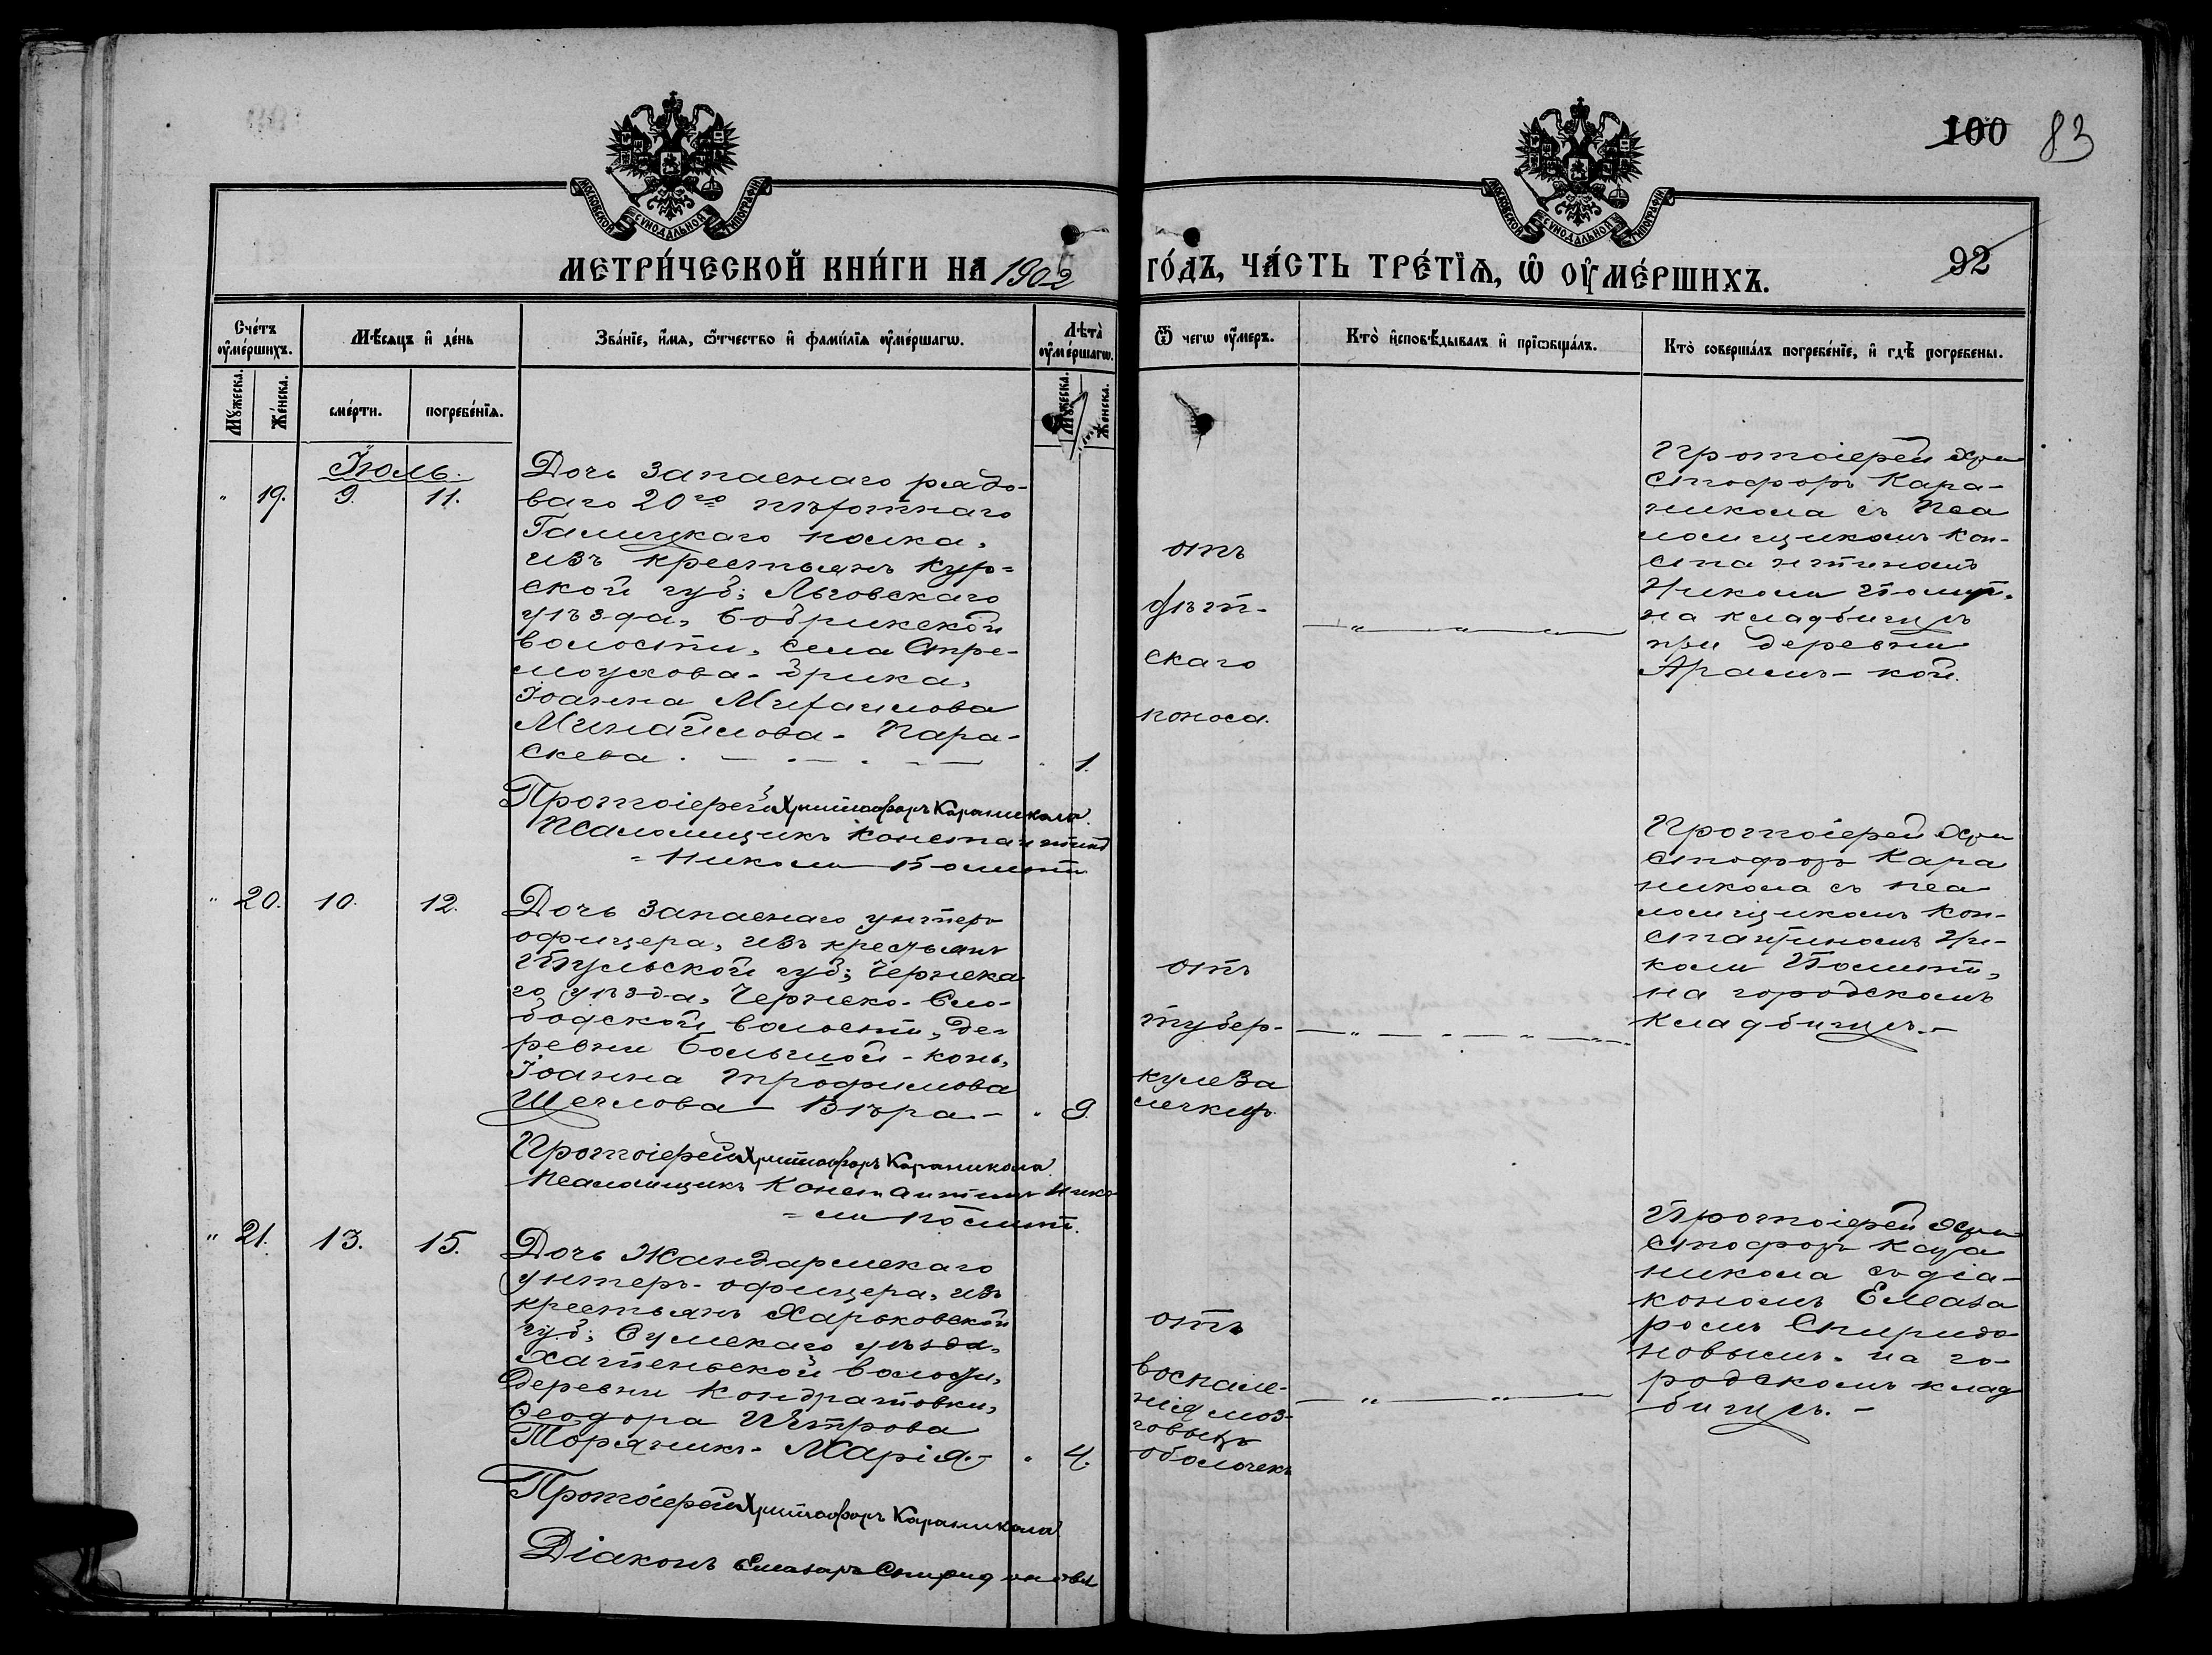 100 83
92
МОСКОВСКОЙ СѴНОДАЛЬНОЙ ТИПОГРАФІИ
МОСКОВСКОЙ СѴНОДАЛЬНОЙ ТИПОГРАФІИ
МЕТРИ́ЧЕСКОЙ КНИ́ГИ НА 1902 ГО́ДЪ, ЧА́СТЬ ТРЕ́ТІѦ, Ѡ ОУ҆МЕ́РШИХЪ.
Сче́тъ оу҆ме́ршихъ.
Мꙋ́жеска.
Же́нска.
Мѣ́сяцъ и҆ де́нь
сме́рти.
погребе́нїѧ.
Зва́нїе, и҆́мѧ, ѻ҆́тчество и҆ фами́лїѧ оу҆ме́ршагѡ.
Лѣта̀ оу҆ме́ршагѡ.
Мꙋ́жеска.
Же́нска.
Ѿ чегѡ̀ оу҆́меръ.
Кто̀ и҆сповѣ́дывалъ и҆ прїѡбща́лъ.
Кто̀ соверша́лъ погребе́нїе, и҆ гдѣ̀ погребены.
Іюль.
" 19. 9. 11.
Дочь запаснаго рядо-
ваго 20го пѣхотнаго
Галицкаго полка,
изъ крестьянъ Кур-
ской губ; Льговскаго
уѣзда,
волости, села Стре-
моухова-
Іоанна Михаилова
Минайлова- Пара-
скева. " 1.
Протоіерей Христофоръ Караникола.
Псаломщикъ Константинъ
= Николи Полити
отъ
дѣт-
скаго
поноса.
Протоіерей Хри
стофоръ Кара-
никола съ пса
ломщикомъ Кон-
стантиномъ
Николи Полит.
на кладбищѣ
при деревни
" 20. 10. 12.
Дочь запаснаго унтеръ
офицера, изъ крестьянъ
Тульской губ; Чернска
го уѣзда, Чернско-Сло-
бодской волости, де-
ревни Большой-
Іоанна Трофимова
Щеглова Вѣра- " 9.
Протоіерей Христофоръ Караникола.
Псаломщикъ Константинъ Нико
= ли Полит.
отъ
тубер-
кулеза
легкихъ.
Протоіерей Хри
стофоръ Кара
никола съ пса
ломщикомъ Кон-
стантиномъ Ни-
коли Полит.
на городскомъ
кладбищѣ.-
" 21. 13. 15.
Дочь Жандармскаго
унтеръ-офицера, изъ
крестьянъ Харьковской
губ; Сумскаго уѣзда,
Хатенской волости,
деревни Кондратовки,
Ѳеодора Петрова
Торяникъ- Марія.- " 4.
Протоіерей Христофоръ Караникола
Діаконъ Елеазаръ Спиридоновъ
отъ
воспале-
нія моз-
говыхъ
оболочекъ
Протоіерей Хри
стофоръ Кара
никола съ діа-
кономъ Елеаза
ромъ Спиридо-
новымъ. на го-
родскомъ клад
бищѣ.-